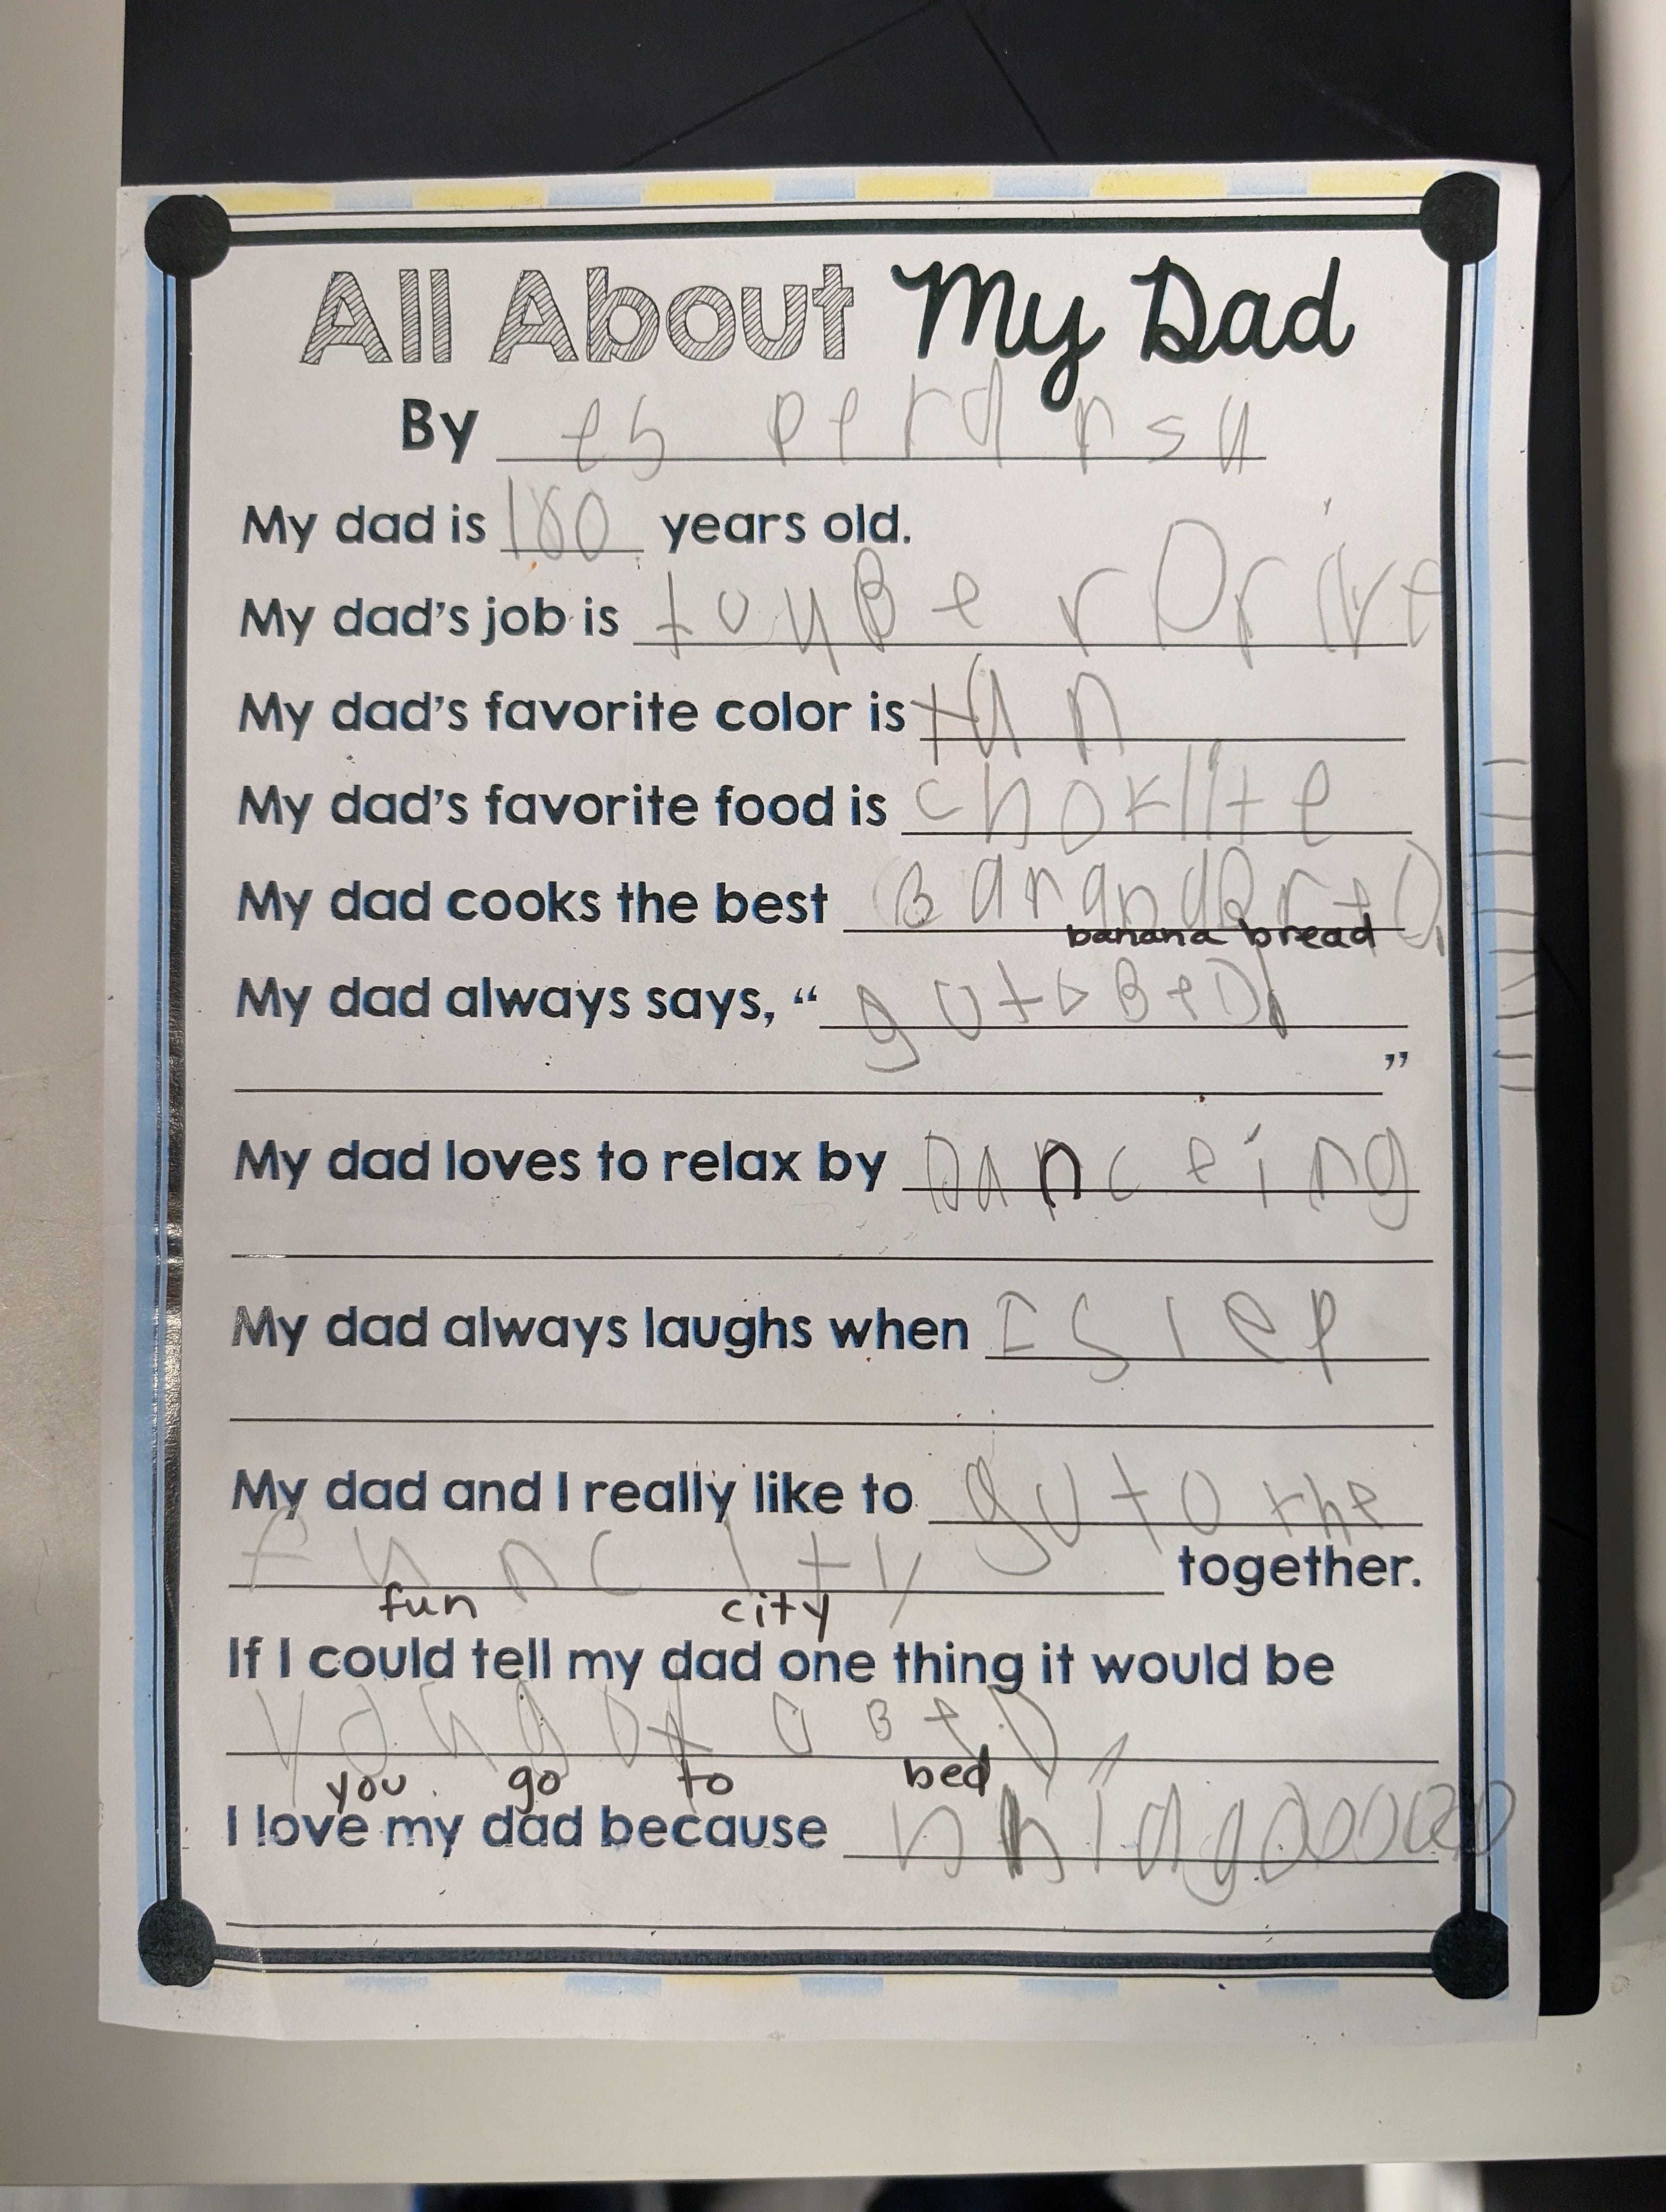 All About My Dad
By es perdnsu
My dad is 100 years old.
My dad's job is to uBer Drive
My dad's favorite color is tan
My dad's favorite food is choklite
My dad cooks the best BananaBreD
banana bread
My dad always says, "gotoBeD
"
My dad loves to relax by Danceing
My dad always laughs when I slep
My dad and I really like to goto the
funcity together.
fun city
If I could tell my dad one thing it would be
yougotoBeD
you go to bed
I love my dad because